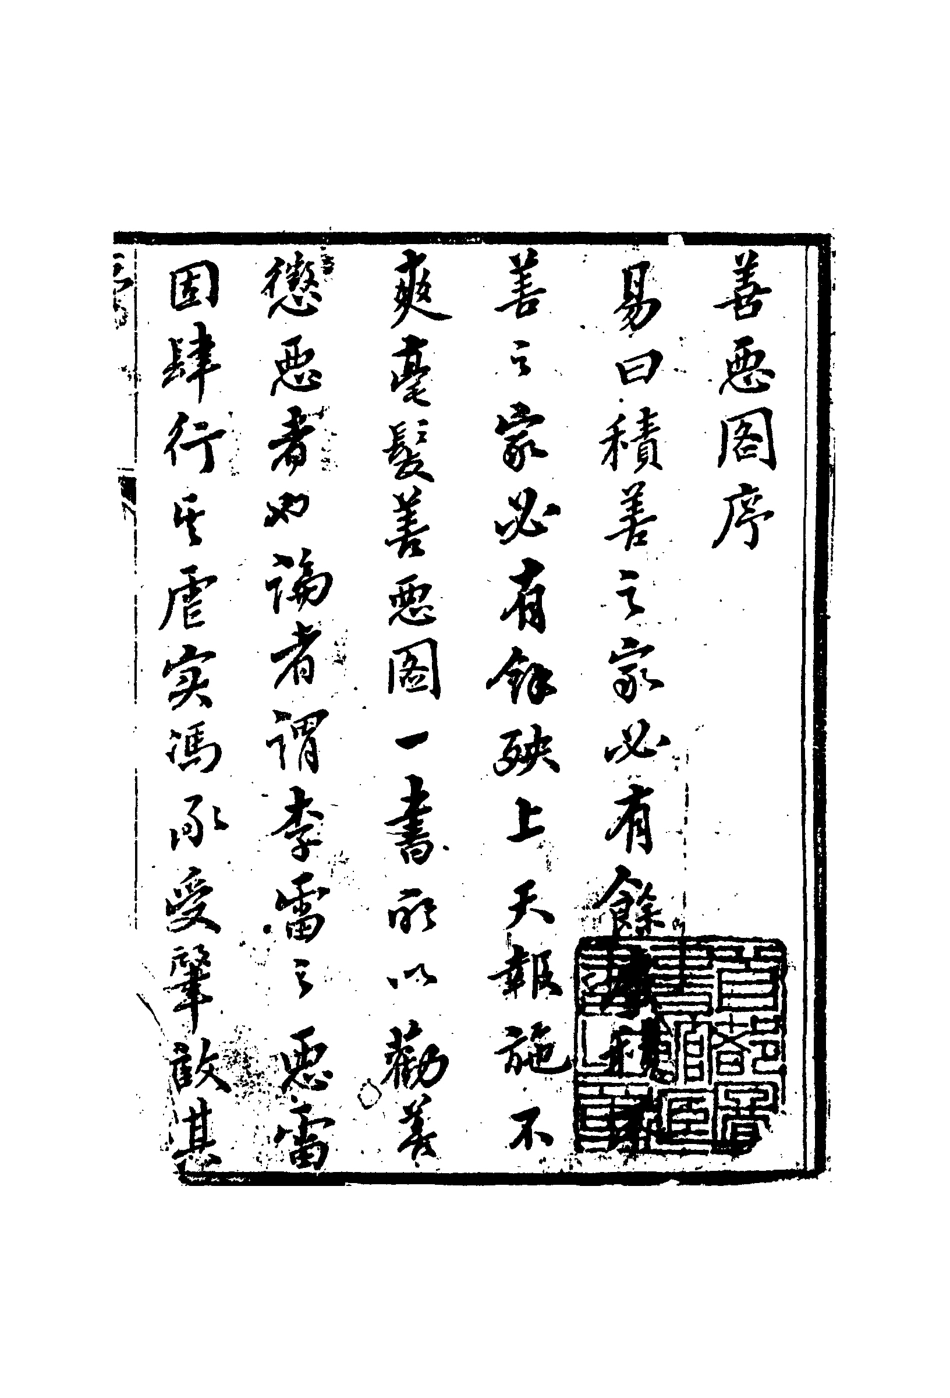 善惡圖序
易曰積善之家必有餘慶積不
善之家必有餘殃上天報施不
爽毫髮善惡圖一書所以勸善
懲惡者也論者謂李雷之惡雷
固肆行其虐实馮承受肇啟其
首都圖
書館藏
書之章